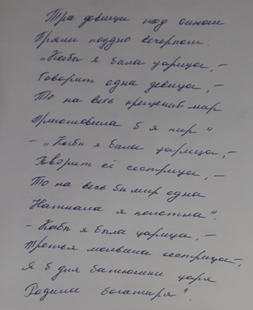 Три девицы под окном
Пряли поздно вечерком.
"Кабы я была царица, –
Говорит одна девица, –
То на весь крещеный мир
Приготовила б я пир"
– "Кабы я была царица, –
Говорит её сестрица, –
То на весь бы мир одна
Наткала я полотна".
– Кабы я была царица, –
Третья молвила сестрица, –
Я б для батюшки царя
Родила богатыря".